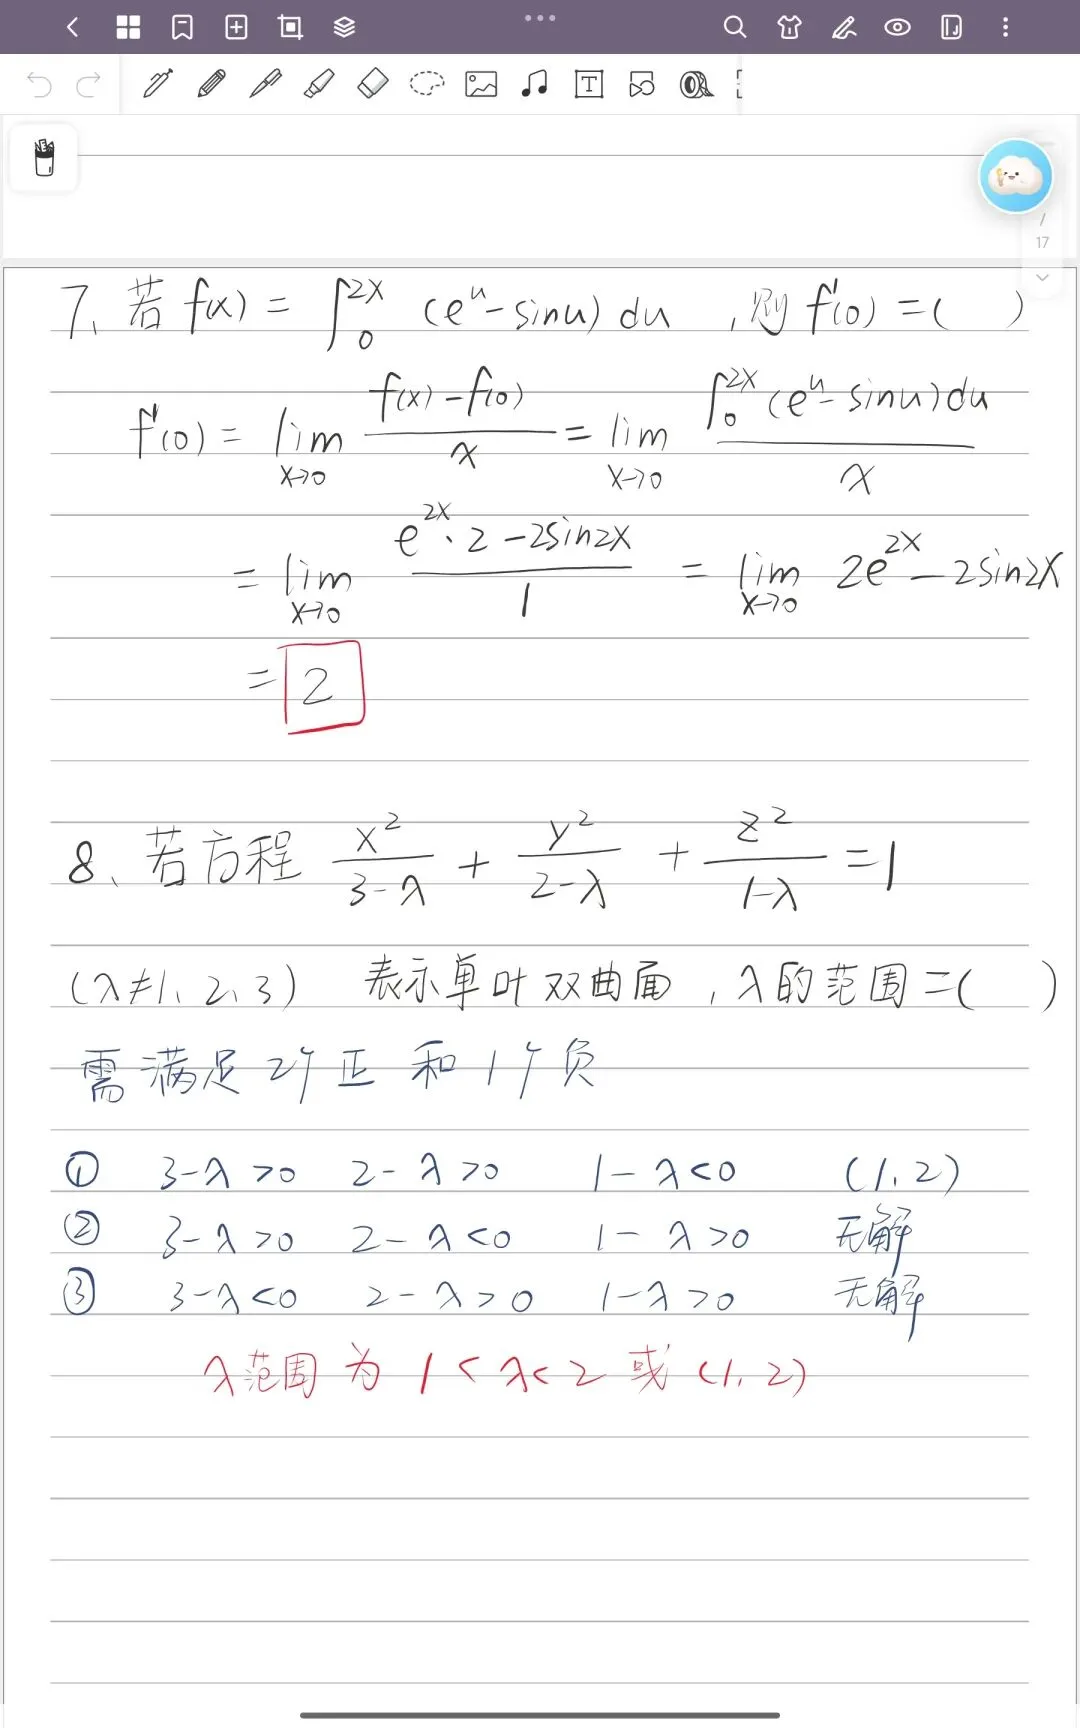 /
17
7、若 f(x) = ∫₀^{2x} (e^u - sinu) du ,则 f'(0) = ( )
f'(0) = lim_{x→0} (f(x) - f(0))/x = lim_{x→0} (∫₀^{2x} (e^u - sinu) du)/x
= lim_{x→0} (e^{2x}·2 - 2sin2x)/1 = lim_{x→0} 2e^{2x} - 2sin2x
= 2
8、若方程 x²/(3-λ) + y²/(2-λ) + z²/(1-λ) = 1
(λ≠1、2、3) 表示单叶双曲面 , λ的范围=( )
需满足2个正和1个负
① 3-λ>0 2-λ>0 1-λ<0 (1, 2)
② 3-λ>0 2-λ<0 1-λ>0 无解
③ 3-λ<0 2-λ>0 1-λ>0 无解
λ范围为 1<λ<2 或 (1, 2)